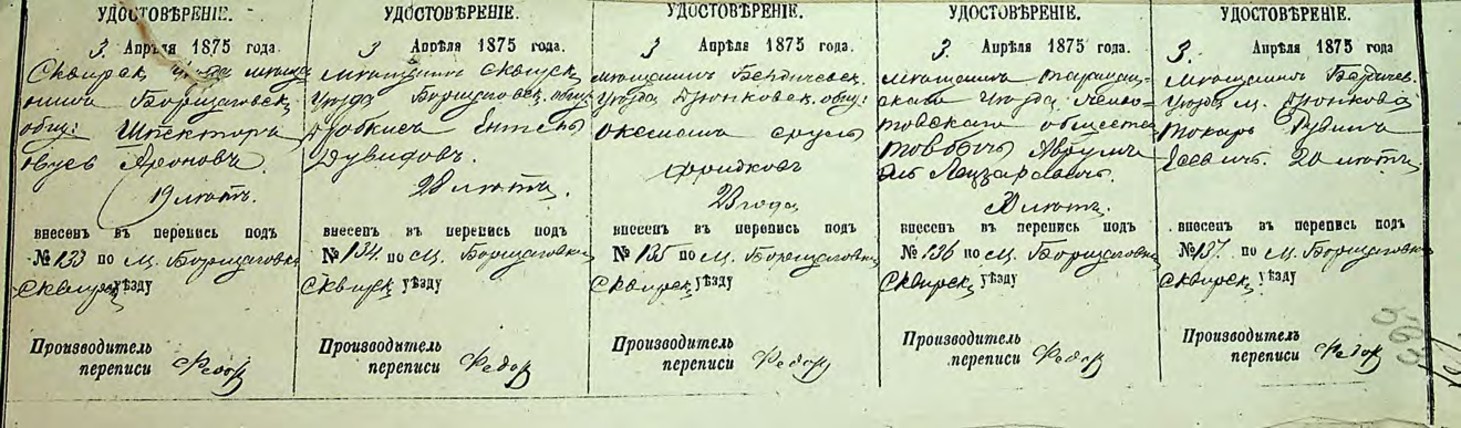 УДОСТОВѢРЕНІЕ.
3 Апрѣля 1875 года.
Сквирск. уѣзда мѣща
нинъ Борщаговск.
общ: Шпектора
Ароновъ.
19 лѣтъ.
внесенъ въ перепись подъ
№ 133 по м. Борщаговки
Сквирск. уѣзду
Производитель
переписи Федор
УДОСТОВѢРЕНІЕ.
3 Апрѣля 1875 года.
мѣщанинъ Сквирск.
уѣзда Борщаговск. общ.
Дувидовъ.
20 лѣтъ.
внесенъ въ перепись подъ
№ 134. по м. Борщаговки
Сквирск. уѣзду
Производитель
переписи Федор
УДОСТОВѢРЕНІЕ.
3 Апрѣля 1875 года.
мѣщанинъ Бердичевск.
уѣзда Дзюнковск. общ:
Оксманъ Сруль
Фридковъ
20 года
внесенъ въ перепись подъ
№ 135 по м. Борщаговки
Сквирск. уѣзду
Производитель
переписи Федор
УДОСТОВѢРЕНІЕ.
3. Апрѣля 1875 года.
мѣщанинъ Таращан-
скаго уѣзда
товскаго общества
Аврумъ
Лейзаровичъ.
20 лѣтъ.
внесенъ въ перепись подъ
№ 136 по м. Борщаговки
Сквирск. уѣзду
Производитель
переписи Федор
УДОСТОВѢРЕНІЕ.
3. Апрѣля 1875 года
мѣщанинъ Бердичев.
уѣзда м. Дзюнкова
Токарь Рувинъ
20 лѣтъ
внесенъ въ перепись подъ
№ 137. по м. Борщаговки
Сквирск. уѣзду
Производитель
переписи Федор